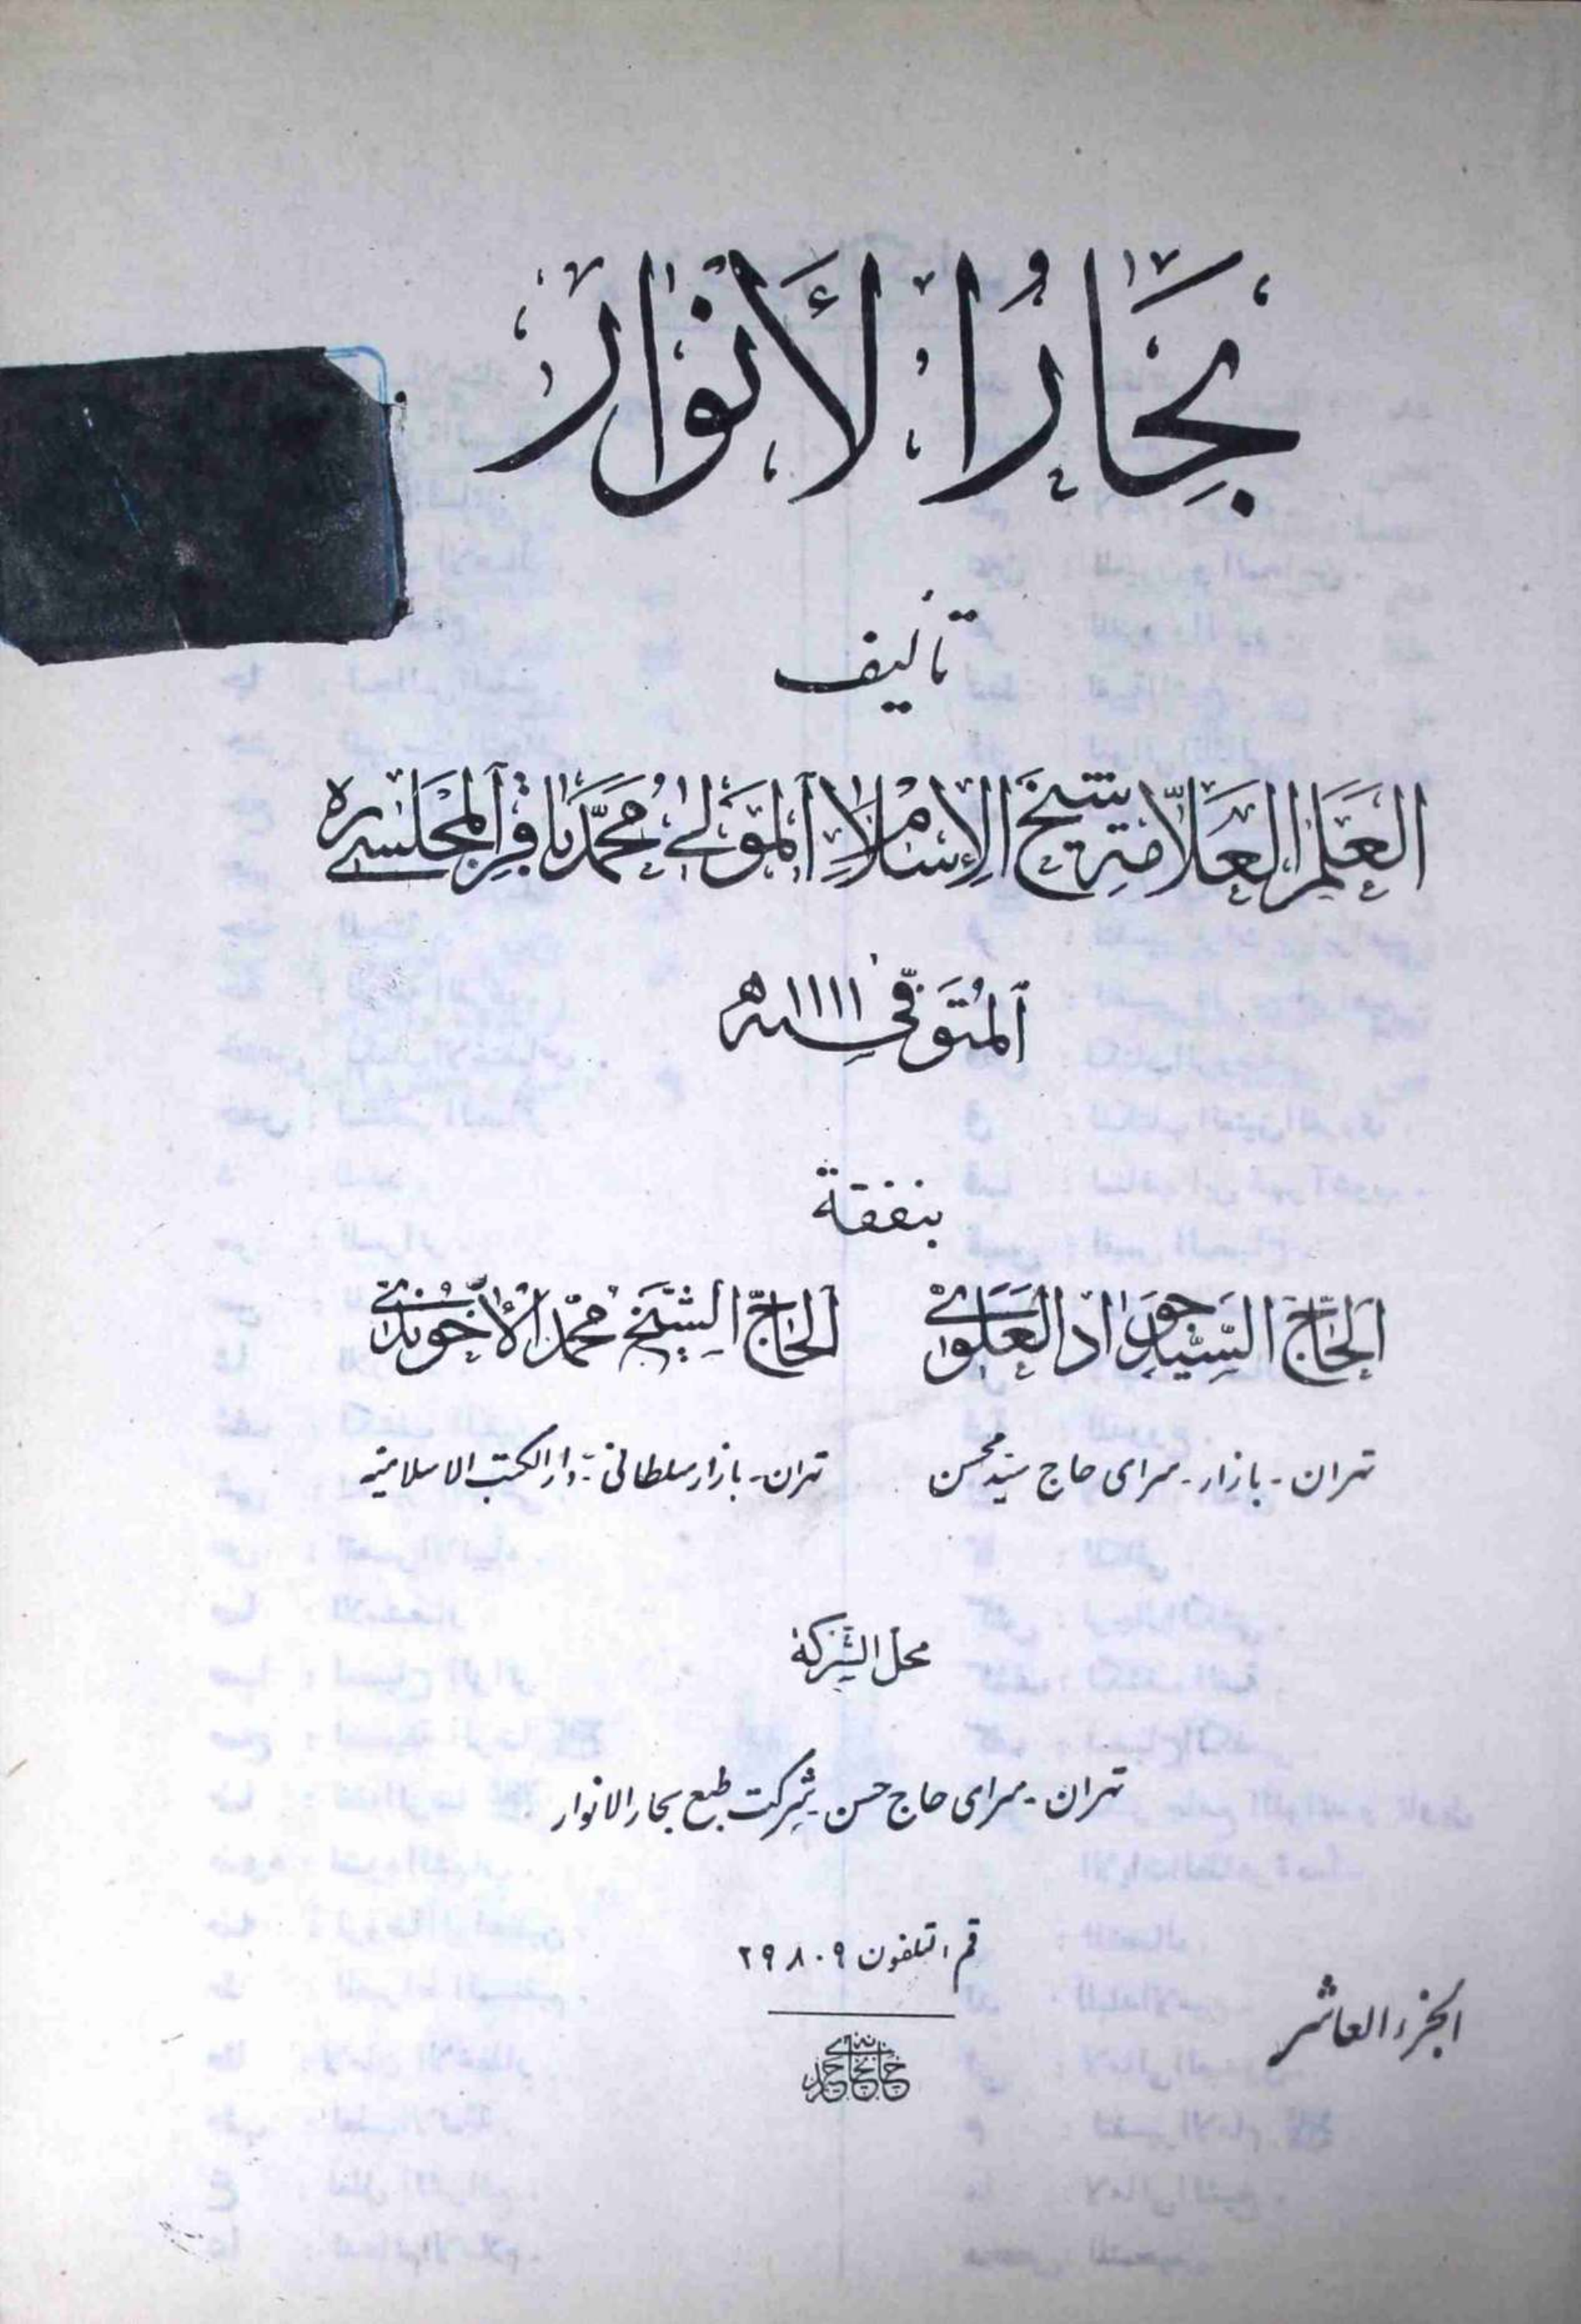 بِحَارُ الأَنْوَارِ
تأليف
العَلَمِ العَلّامَةِ شَيْخِ الإِسْلامِ المَوْلى مُحَمَّد بَاقِر المَجْلِسي ره
المُتَوَفّى ١١١١ ه
بنفقة
الحَاجّ السَّيِّد جَوَاد العَلَوي الحَاجّ الشَّيْخ مُحَمَّد الآخُوندي
تهران - بازار - سرای حاج سید محسن تهران - بازار سلطانی - دار الکتب الاسلامیة
محل الشّركة
تهران - سرای حاج حسن - شرکت طبع بحار الانوار
رقم التلفون ٢٩٨٠٩
الجزء العاشر